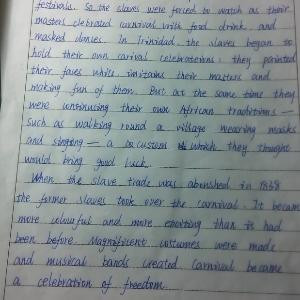 festivals. So the slaves were forced to watch as their
masters clebrated carnival with food, drink, and
masked danses. In Trinidad, the slaves began to
hold their own carival celebrations: they painted
their faces while imitains their masters and
making fun of them. But at the same time they
were untinuting their own African traditions —
such as walking round a village wearing masks
and singing — a custom which they thought
would bring good luck.
When the slave trade was abonshed in 1838
the former slaves took over the carnival. It became
more colourful and more exciting than it had
been before. Magnificent costumes were made
and musical bands created. Carnival became
a celebration of freedom.